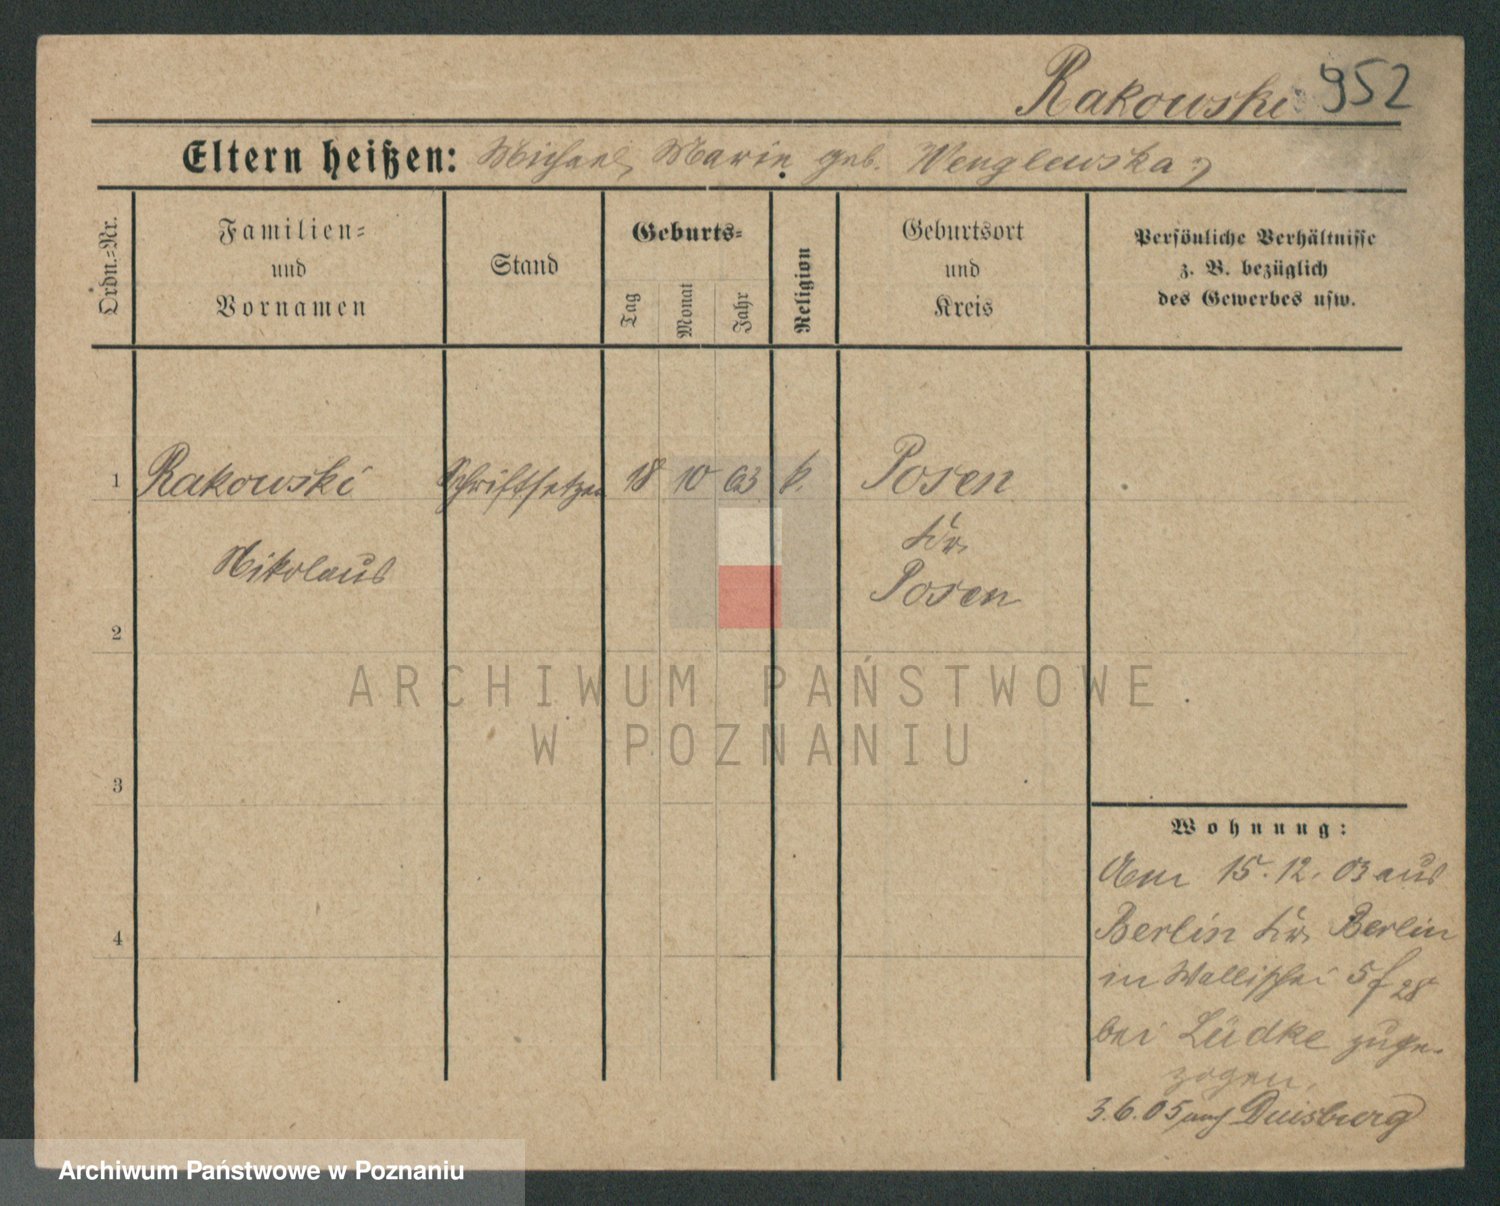 Rakowski 952
Eltern heißen: Michael, Marie geb. Wenglewska
Ordn.-Nr.
Familien-
und
Vornamen
Stand
Geburts-
Tag
Monat
Jahr
Religion
Geburtsort
und
Kreis
Persönliche Verhältnisse
z. B. bezüglich
des Gewerbes usw.
1 Rakowski Schriftsetzer 18 10 63 k. Posen
Kr.
Nikolaus
Posen
2
3
4
Wohnung:
Am 15. 12. 03 aus
Berlin Kr. Berlin
in Wallischei 28
bei Lüdke zuge-
zogen.
3.6.05 nach Duisburg
ARCHIWUM PAŃSTWOWE
W POZNANIU
Archiwum Państwowe w Poznaniu